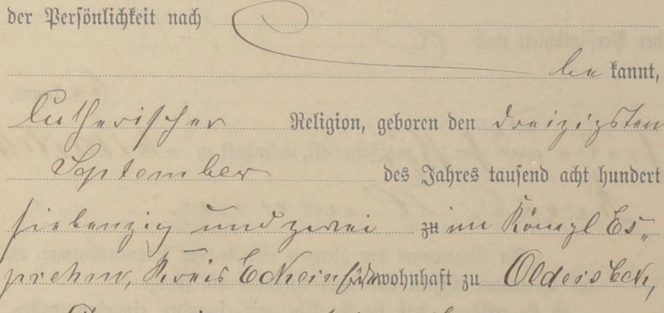 der Persönlichkeit nach
be kannt,
lutherischer Religion, geboren den dreizigsten
September des Jahres tausend acht hundert
siebenzig und zwei zu im Königl Es„
prehm, Kreis Eckernför wohnhaft zu Oldersbek,